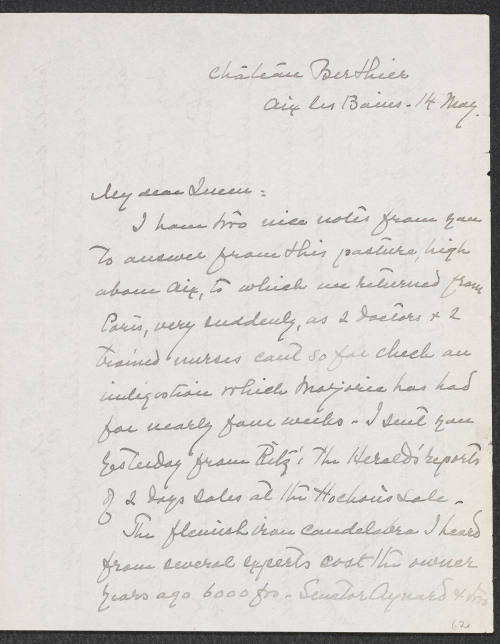 Château Berthier
Aix les Bains - 14 May.
My dear Queen:
I have two nice notes from you
to answer from this pasture, high
above Aix, to which we returned from
Paris, very suddenly, as 2 doctors & 2
trained nurses cant so far check an
indigestion which Marjorie has had
for nearly four weeks - I sent you
yesterday from Ritz' the Herald's reports
of 2 days sales at the Hochon's Sale -
The flemish iron candelabra I heard
from several experts cost the owner
years ago 6000 frs - Senator Aynard & two
62